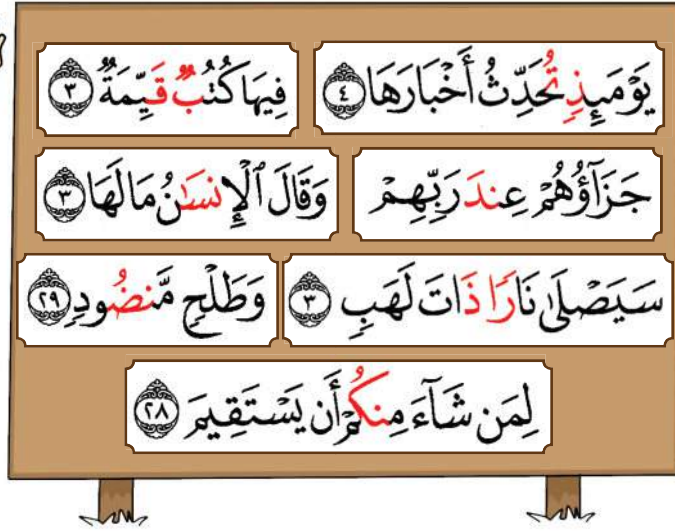 يَوْمَئِذٍ تُحَدِّثُ أَخْبَارَهَا ٤
فِيهَا كُتُبٌ قَيِّمَةٌ ٣
جَزَآؤُهُمْ عِندَ رَبِّهِمْ
وَقَالَ ٱلْإِنسَٰنُ مَا لَهَا ٣
سَيَصْلَىٰ نَارًا ذَاتَ لَهَبٍ ٣
وَطَلْحٍ مَّنضُودٍ ٢٩
لِمَن شَآءَ مِنكُمْ أَن يَسْتَقِيمَ ٢٨